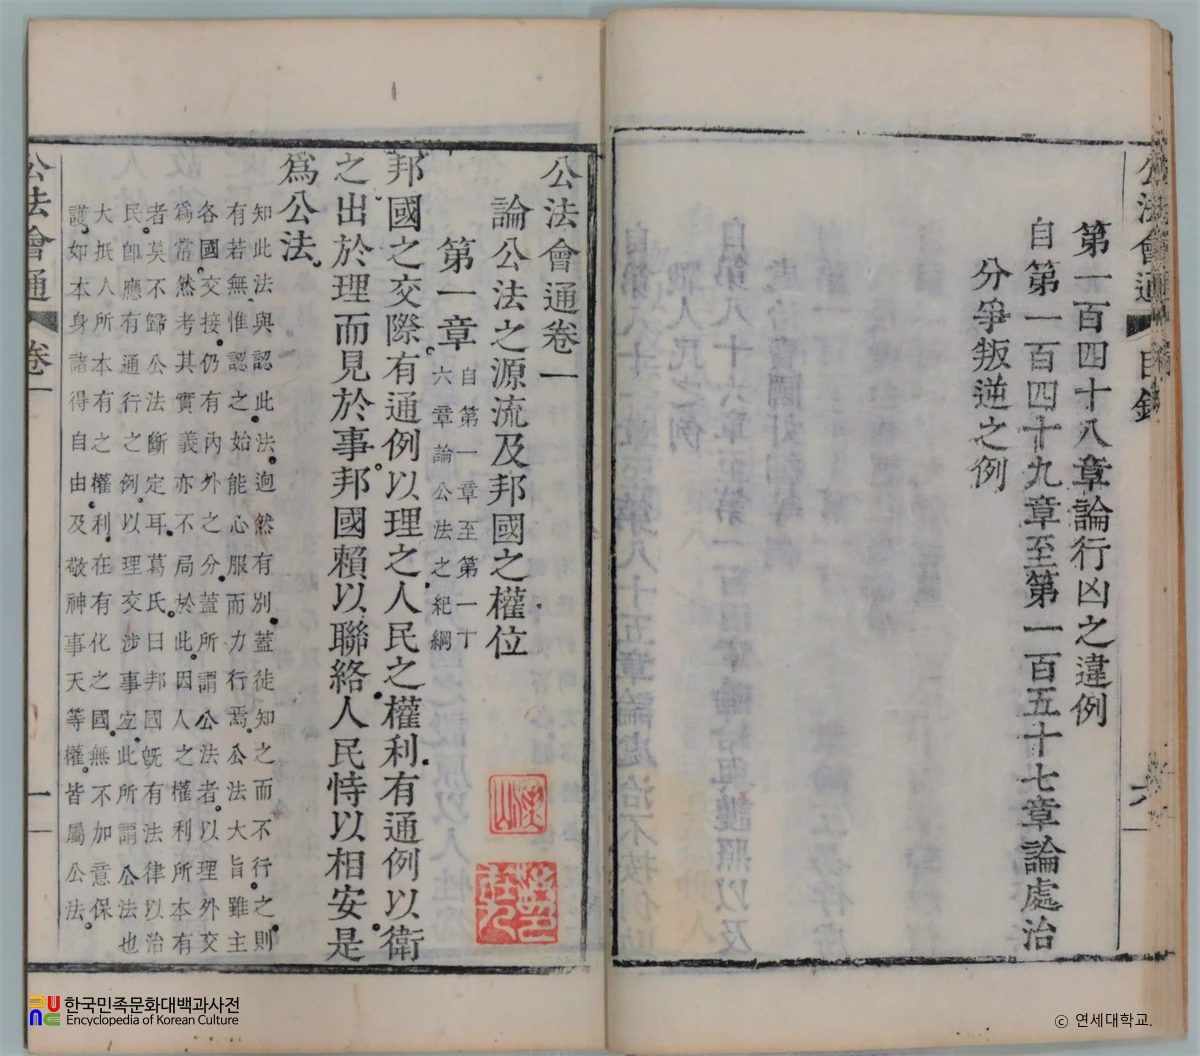 公法會通 目錄
第一百四十八章論行凶之違例
自第一百四十九章至第一百五十七章論處治
分爭叛逆之例
六
公法會通卷一
論公法之源流及邦國之權位
第一章 自第一章至第一十
六章論公法之紀綱
邦國之交際有通例以理之人民之權利有通例以衛
之出於理而見於事邦國賴以聯絡人民恃以相安是
爲公法
知此法與認此法迥然有別蓋徒知之而不行之則
有若無惟認之始能心服而力行焉公法大旨雖主
各國交接仍有內外之分蓋所謂公法者以理外交
爲常然考其實義亦不局於此因人之權利所本有
者莫不歸公法斷定耳葛氏曰邦國旣有法律以治
民卽應有通行之例以理交涉事宜此所謂公法也
大抵人所本有之權利在有化之國無不加意保
護如本身諸得自由及敬神事天等權皆屬公法
公法會通 卷一
一
한국민족문화대백과사전
Encyclopedia of Korean Culture
© 연세대학교.